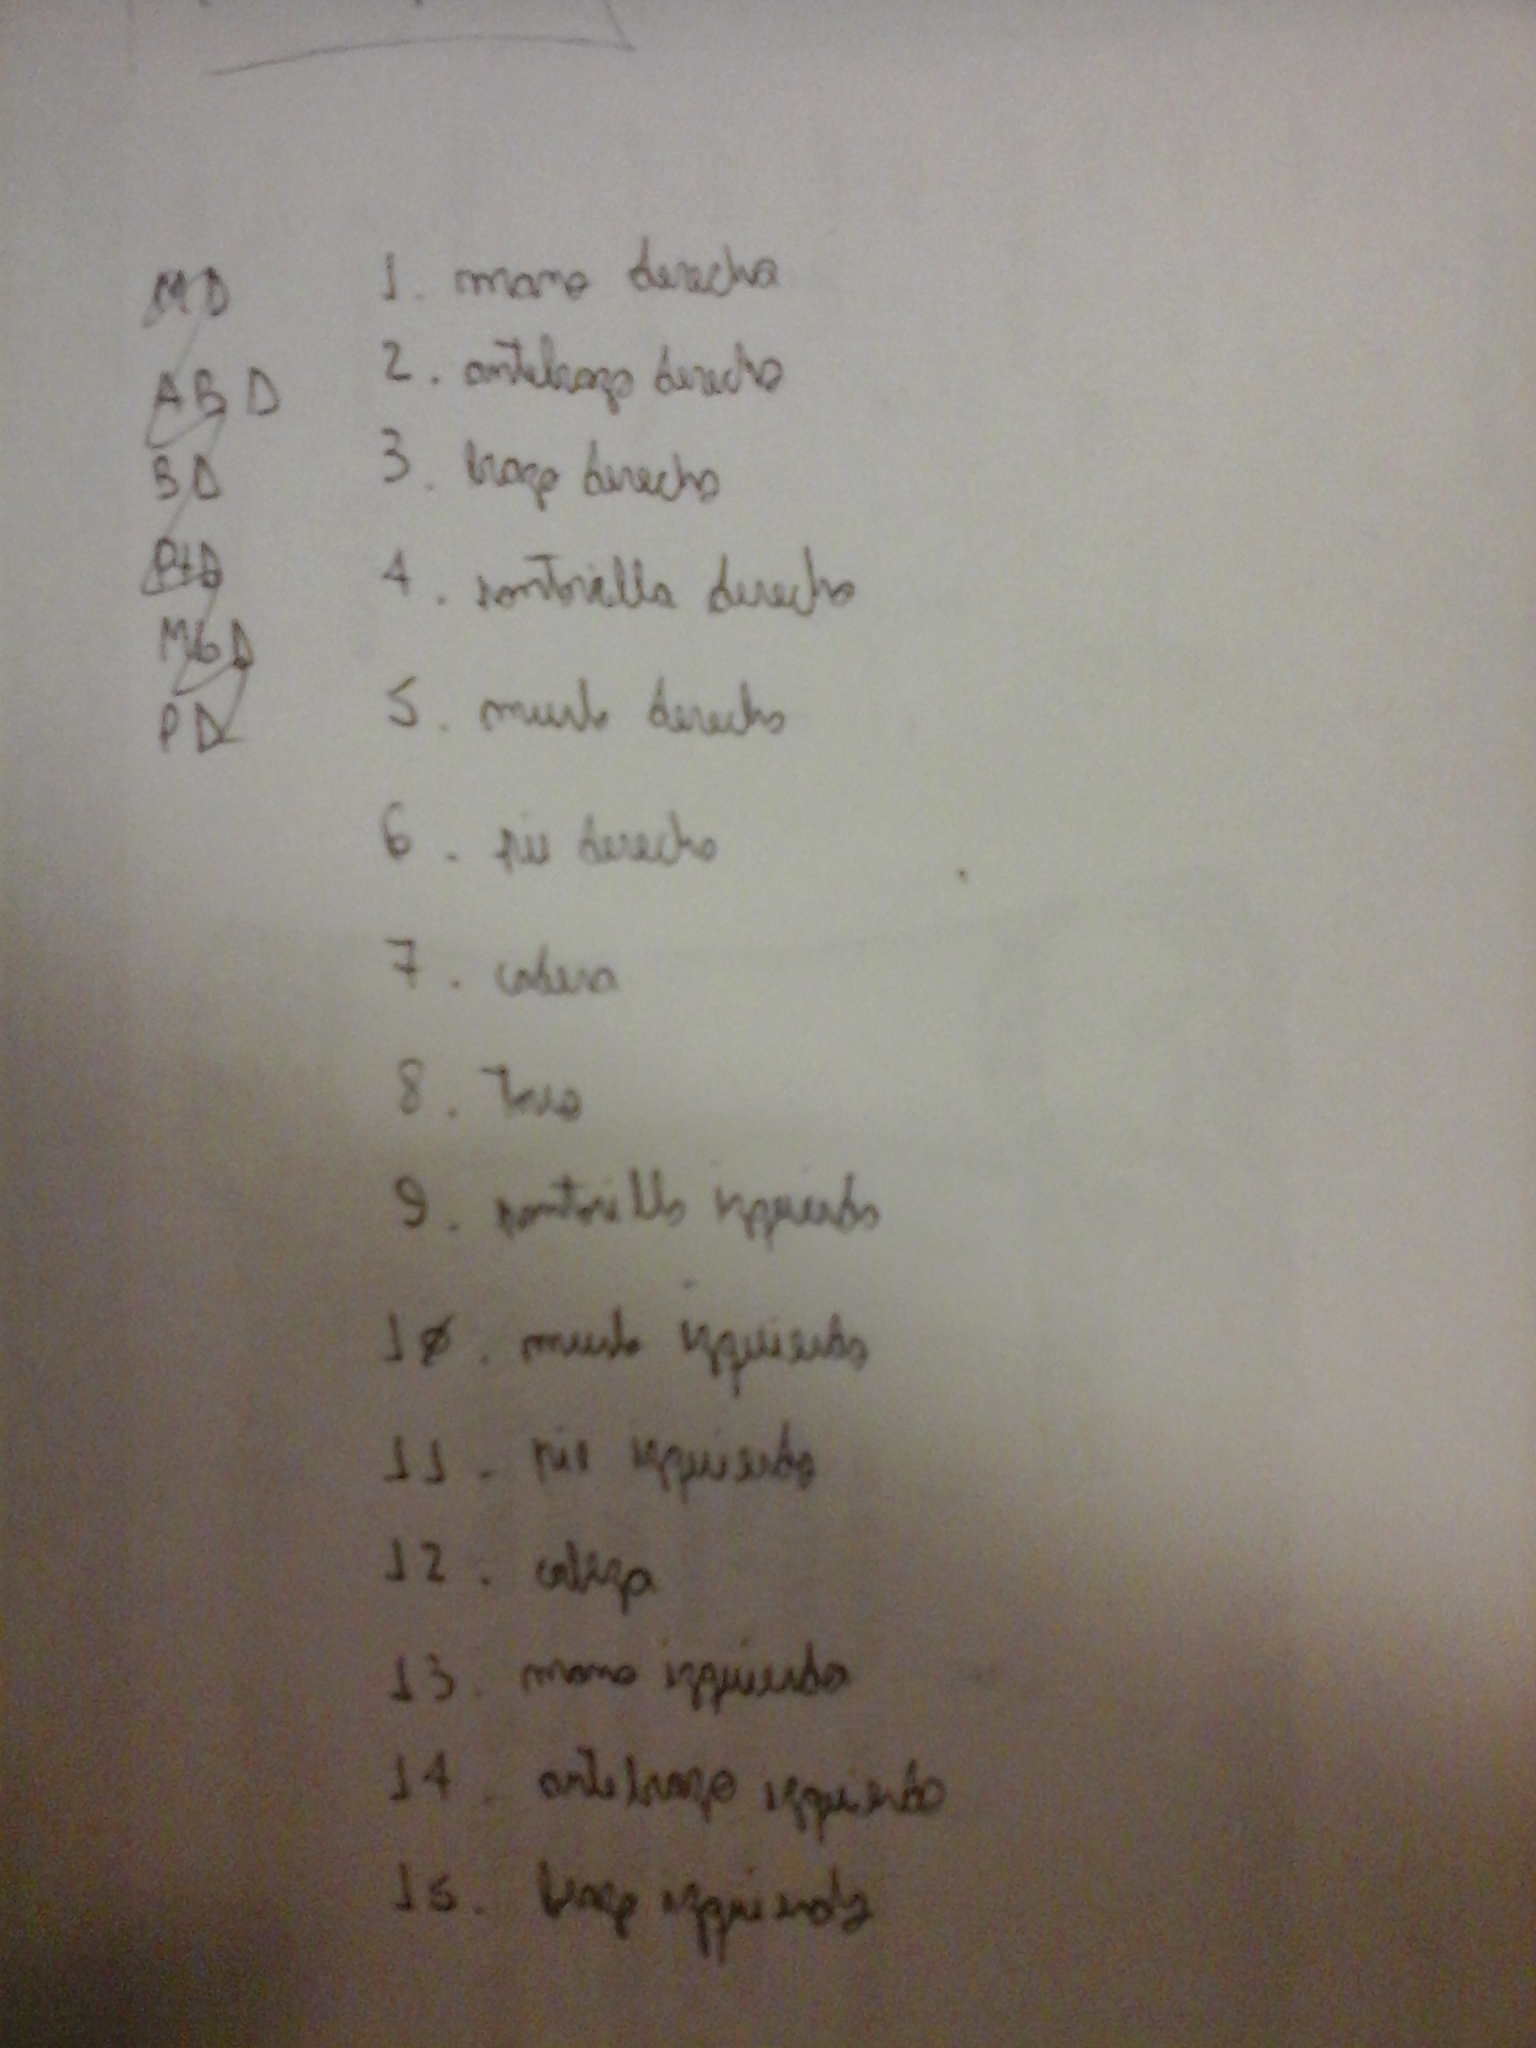 MD 1. mano derecha
ABD 2. antebrazo derecho
BD 3. brazo derecho
4. pantorrilla derecha
5. muslo derecho
PD
6. pie derecho
7. cadera
8.
9. pantorrilla izquierda
10. muslo izquierdo
11. pie izquierdo
12. cabeza
13. mano izquierda
14. antebrazo izquierdo
15. brazo izquierdo